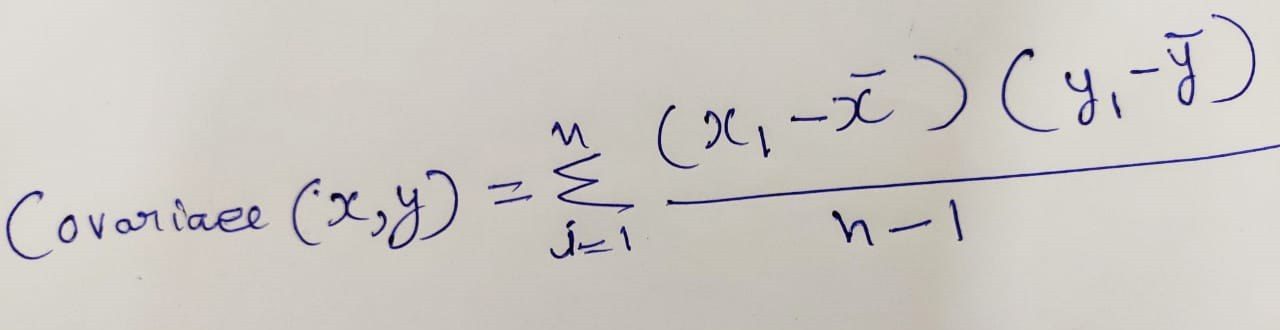 Covariaee (x,y) = n∑i=1 (x₁ - x̄) (y₁ - ȳ) / n - 1